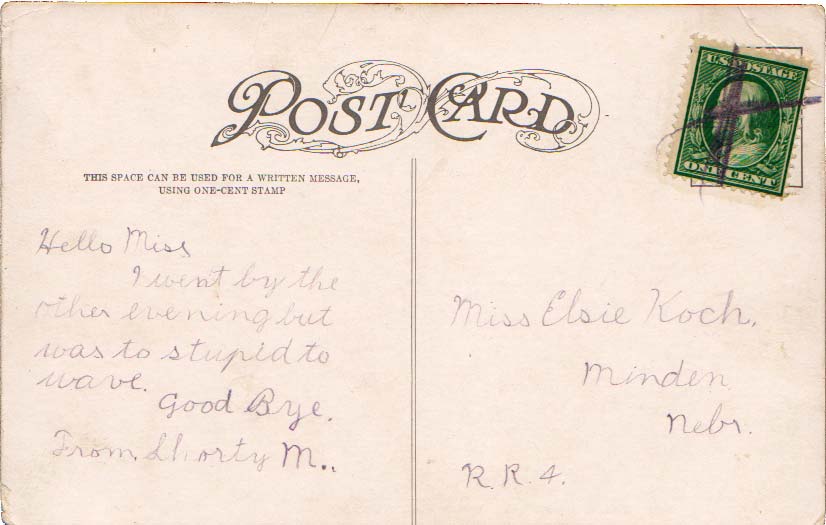 POST CARD
U.S. POSTAGE
ONE CENT
THIS SPACE CAN BE USED FOR A WRITTEN MESSAGE,
USING ONE-CENT STAMP
Hello Miss
I went by the
other evening but
was to stupid to
wave.
Good Bye.
From. Shorty M..
Miss Elsie Koch.
Minden
Nebr.
R. R. 4.